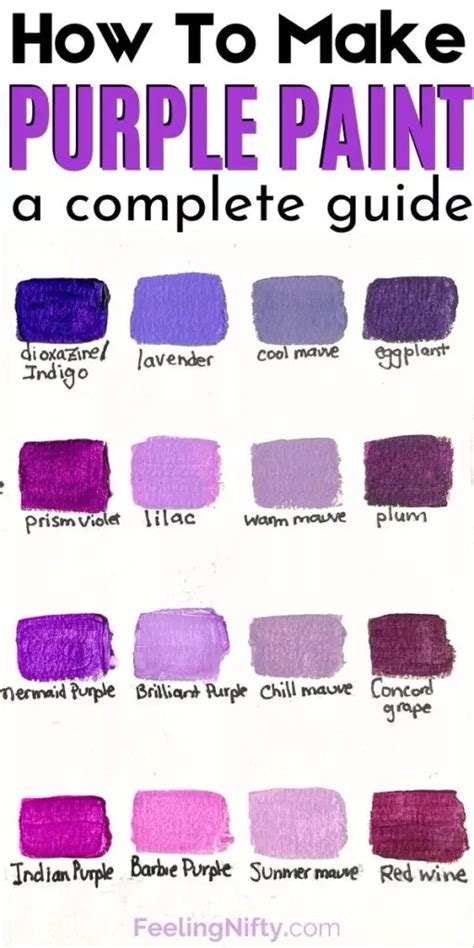 How To Make
PURPLE PAINT
a complete guide
dioxazine/ lavender cool mauve eggplant
Indigo
prism violet lilac warm mauve plum
mermaid Purple Brilliant Purple Chill mauve Concord
grape
Indian Purple Barbie Purple Summer mauve Red wine
FeelingNifty.com